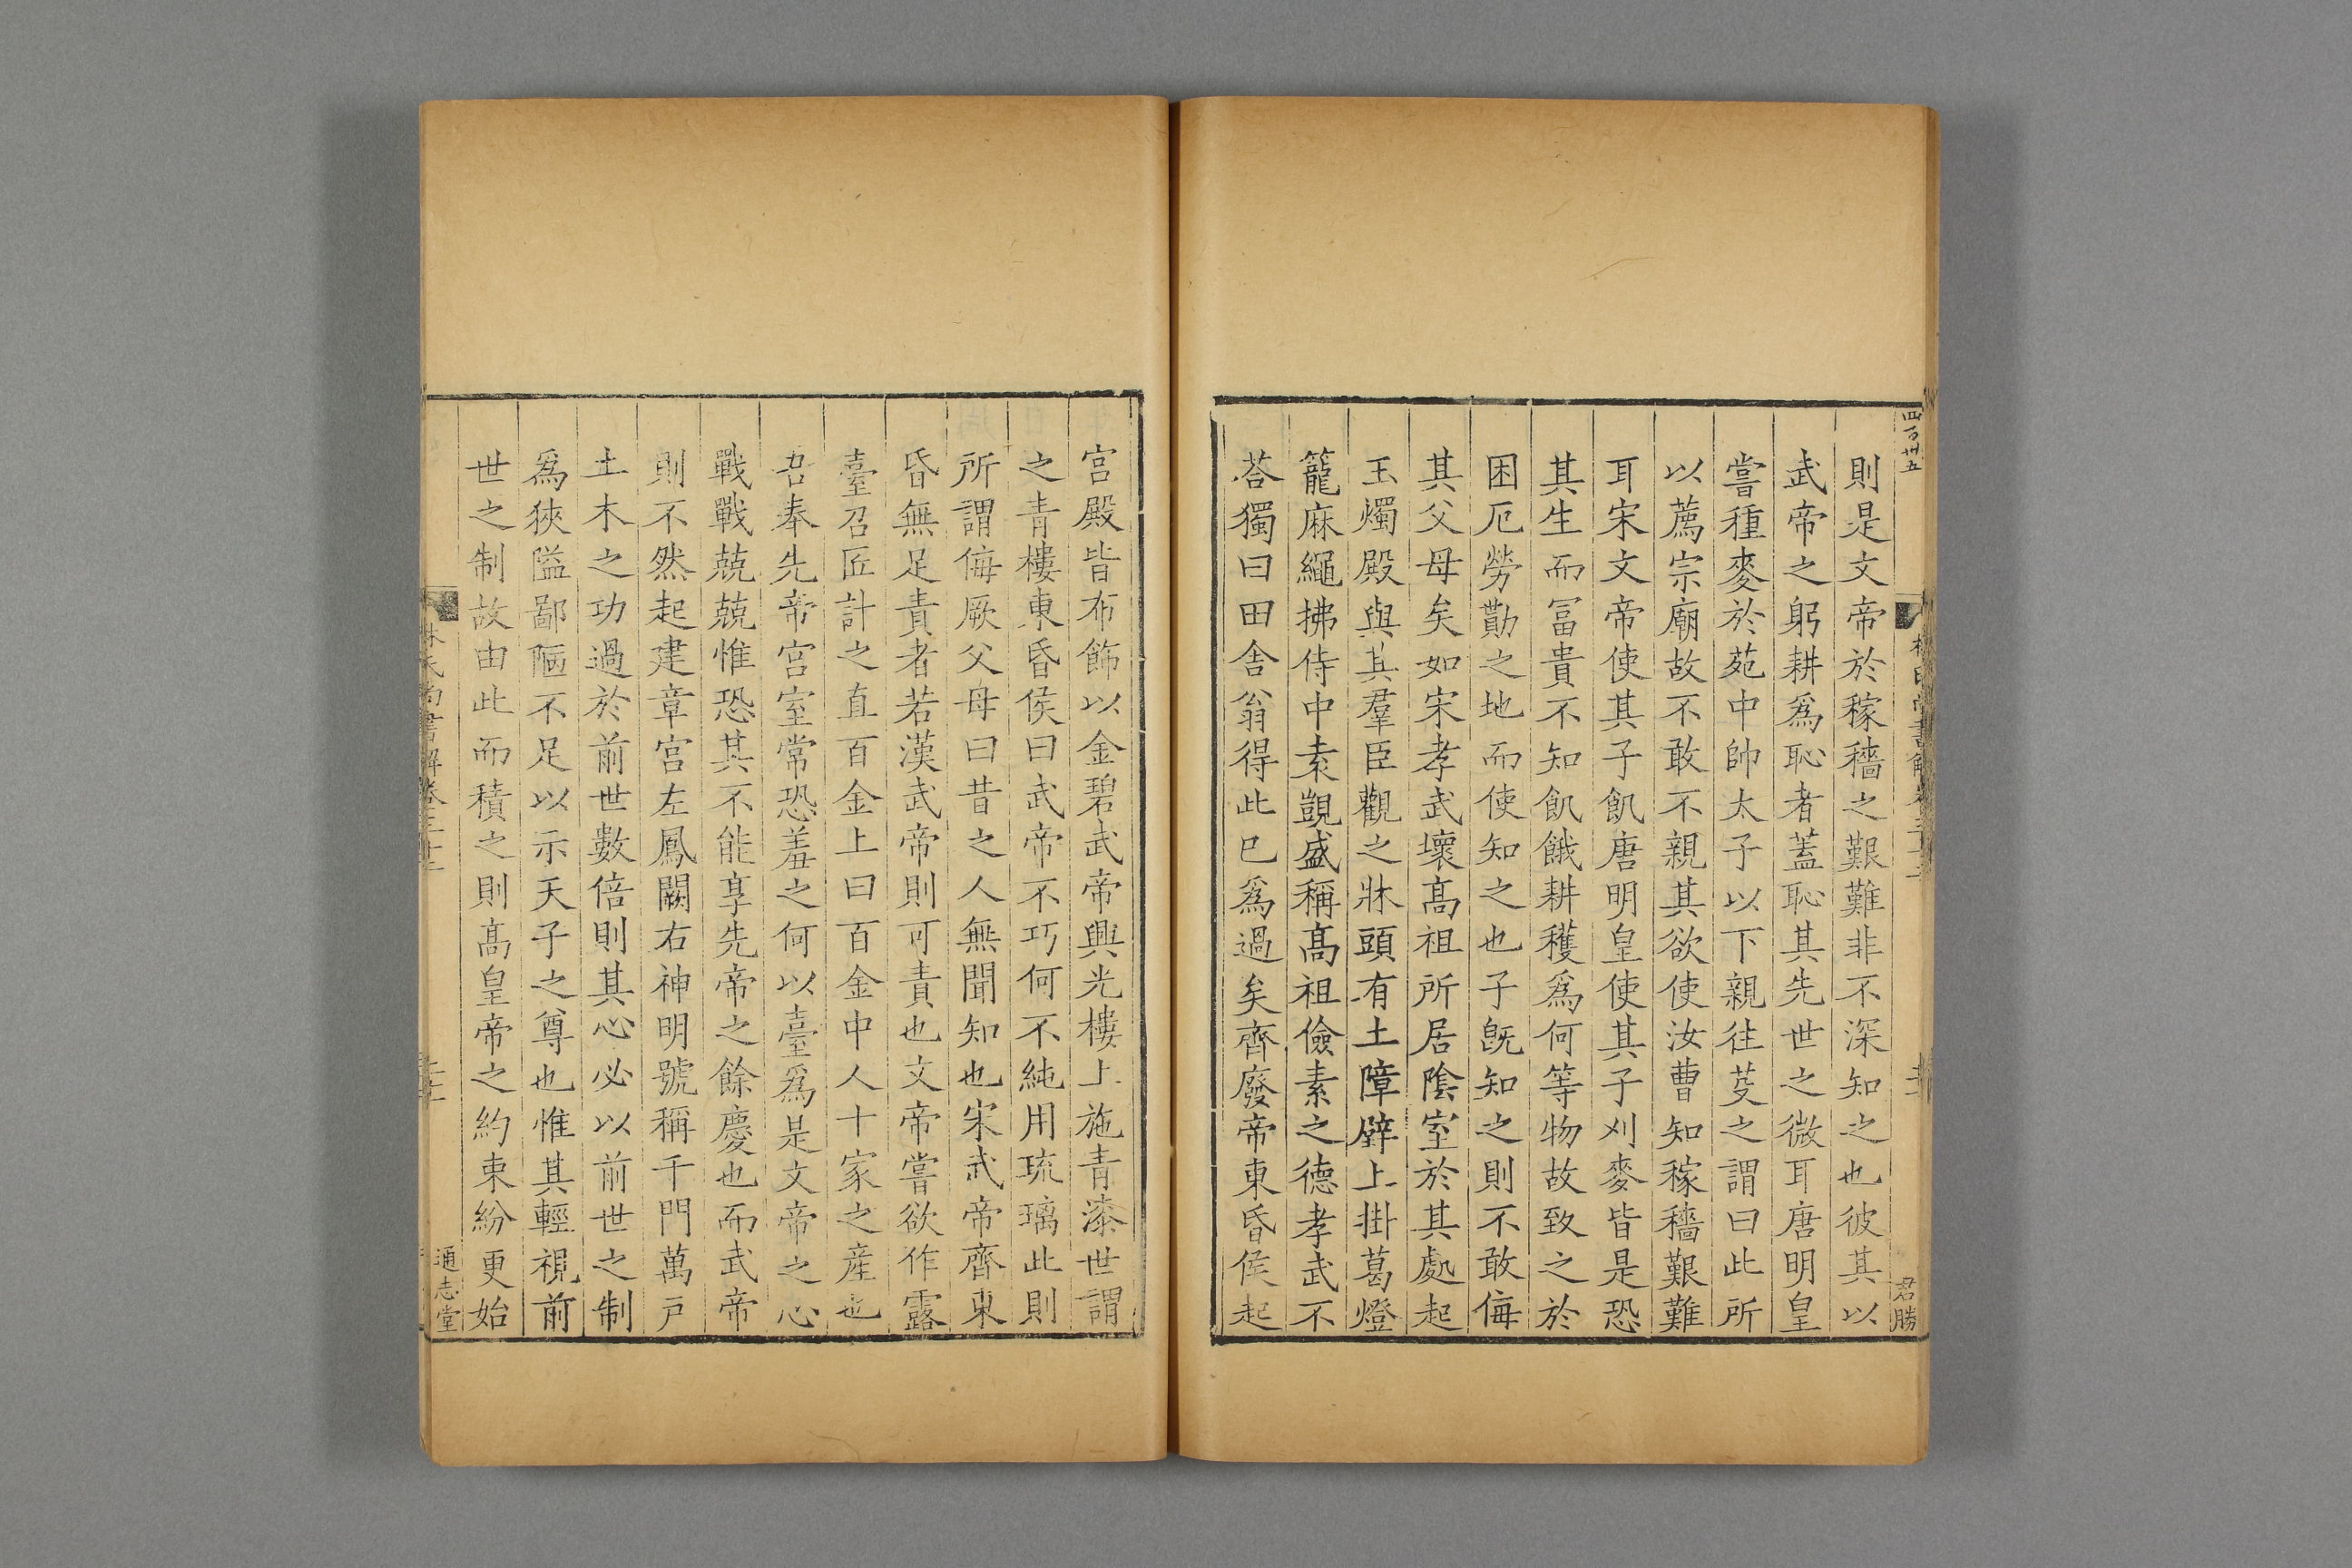 四百卅五
君勝
則是文帝於稼穡之艱難非不深知之也彼其以
武帝之躬耕爲恥者蓋恥其先世之微耳唐明皇
嘗種麥於苑中帥太子以下親往芟之謂曰此所
以薦宗廟故不敢不親其欲使汝曹知稼穡艱難
耳宋文帝使其子飢唐明皇使其子刈麥皆是恐
其生而冨貴不知飢餓耕穫爲何等物故致之於
困厄勞勩之地而使知之也子旣知之則不敢侮
其父母矣如宋孝武壞髙祖所居陰室於其處起
玉燭殿與其羣臣觀之牀頭有土障壁上掛葛燈
籠麻繩拂侍中袁顗盛稱髙祖儉素之德孝武不
荅獨曰田舍翁得此已爲過矣齊廢帝東昏侯起
宫殿皆布飾以金碧武帝興光樓上施青漆世謂
之青樓東昏侯曰武帝不巧何不純用琉璃此則
所謂侮厥父母曰昔之人無聞知也宋武帝齊東
昏無足責者若漢武帝則可責也文帝嘗欲作露
臺召匠計之直百金上曰百金中人十家之産也
吾奉先帝宫室常恐羞之何以臺爲是文帝之心
戰戰兢兢惟恐其不能享先帝之餘慶也而武帝
則不然起建章宫左鳳闕右神明號稱千門萬戸
土木之功過於前世數倍則其心必以前世之制
爲狹隘鄙陋不足以示天子之尊也惟其輕視前
世之制故由此而積之則髙皇帝之約束紛更始
林氏尚書解卷三十
通志堂